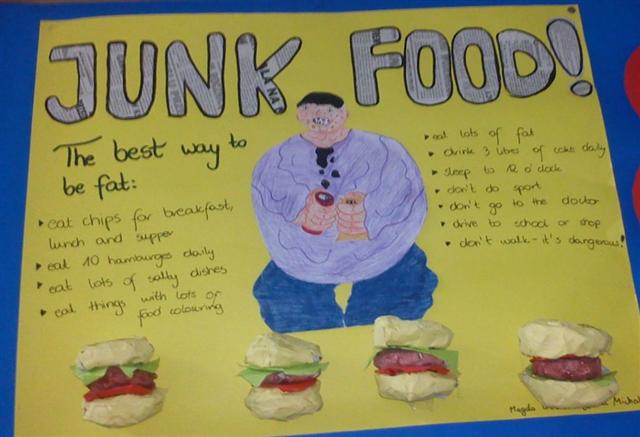 JUNK FOOD!
The best way to
be fat:
eat chips for breakfast,
lunch and supper
eat 10 hamburges daily
eat lots of salty dishes
eat things with lots of
food colouring
eat lots of fat
drink 3 litres of coke daily
sleep to 12 o'clock
don't do sport
don't go to the doctor
drive to school or shop
don't walk - it's dangerous!
Magda